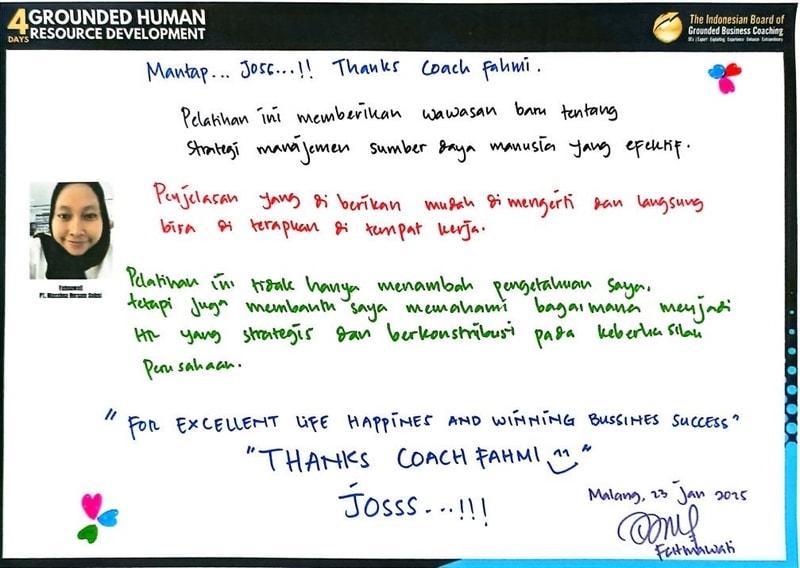 4 DAYS GROUNDED HUMAN
RESOURCE DEVELOPMENT
The Indonesian Board of
Grounded Business Coaching
Mantap... Joss...!! Thanks Coach Fahmi.
Pelatihan ini memberikan wawasan baru tentang
strategi manajemen sumber daya manusia yang efektif.
Penjelasan yang di berikan mudah di mengerti dan langsung
bisa di terapkan di tempat kerja.
Fatmawati
Pelatihan ini tidak hanya menambah pengetahuan saya,
tetapi juga membantu saya memahami bagaimana menjadi
HR yang strategis dan berkonstribusi pada keberhasilan
Perusahaan.
"FOR EXCELLENT LIFE HAPPINES AND WINNING BUSSINES SUCCESS"
"THANKS COACH FAHMI"
JOSSS...!!!
Malang, 23 Jan 2025
Fatmawati